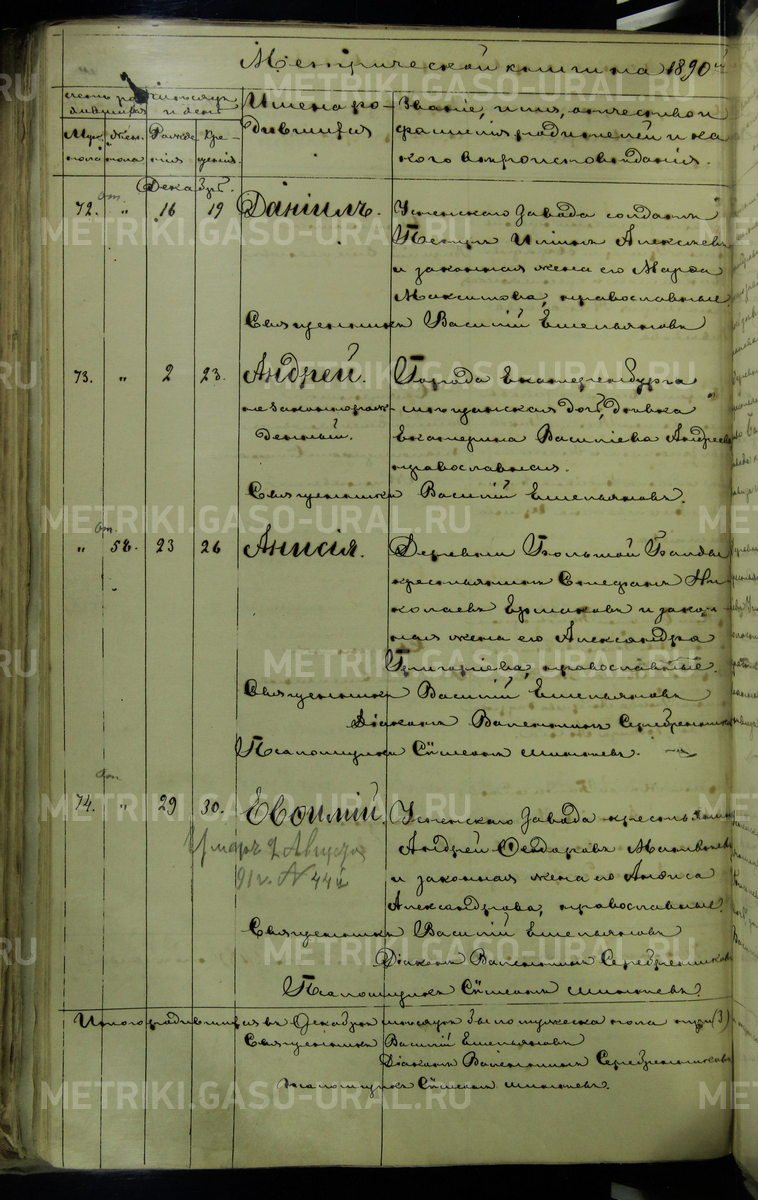 Метрической книги на 1890й
Счетъ родившихся
Мѣсяцъ и день
Имена родившихся
Званіе, имя, отчество и фамилія родителей и какого вѣроисповѣданія.
Муж. пола
Жен. пола
Рожденія
Крещенія.
Декабрь.
72. " 16 19 Даніилъ. Успенскаго Завода солдатъ
Петръ Ильинъ Алексѣевъ
и законная жена его Марѳа
Максимова, православные.
Священникъ Василій Емельяновъ
73. " 2 23. Андрей. Города Екатеринбурга
незаконнорож- мѣщанская дочь, дѣвка
денный. Екатерина Василіева Андреева
православная.
Священникъ Василій Емельяновъ.
" 58. 23 26 Анисія. Деревни Большой
крестьянинъ Стефанъ Ни-
колаевъ Ермаковъ и закон-
ная жена его Александра
Григоріева, православные.
Священникъ Василій Емельяновъ
Діаконъ Валентинъ Серебренниковъ
Псаломщикъ Симеонъ
74. " 29 30. Евѳимій. Успенскаго Завода крестьянинъ
Андрей Ѳедоровъ Матвѣевъ
и законная жена его Анѳиса
Александрова, православные.
Умеръ 2 Августа
91 г. №
Священникъ Василій Емельяновъ
Діаконъ Валентинъ Серебренниковъ
Псаломщикъ Симеонъ
Итого родившихся въ Декабрѣ мѣсяцѣ было мужеска пола три (3)
Священникъ Василій Емельяновъ
Діаконъ Валентинъ Серебренниковъ
Псаломщикъ Симеонъ
METRIKI.GASO-URAL.RU